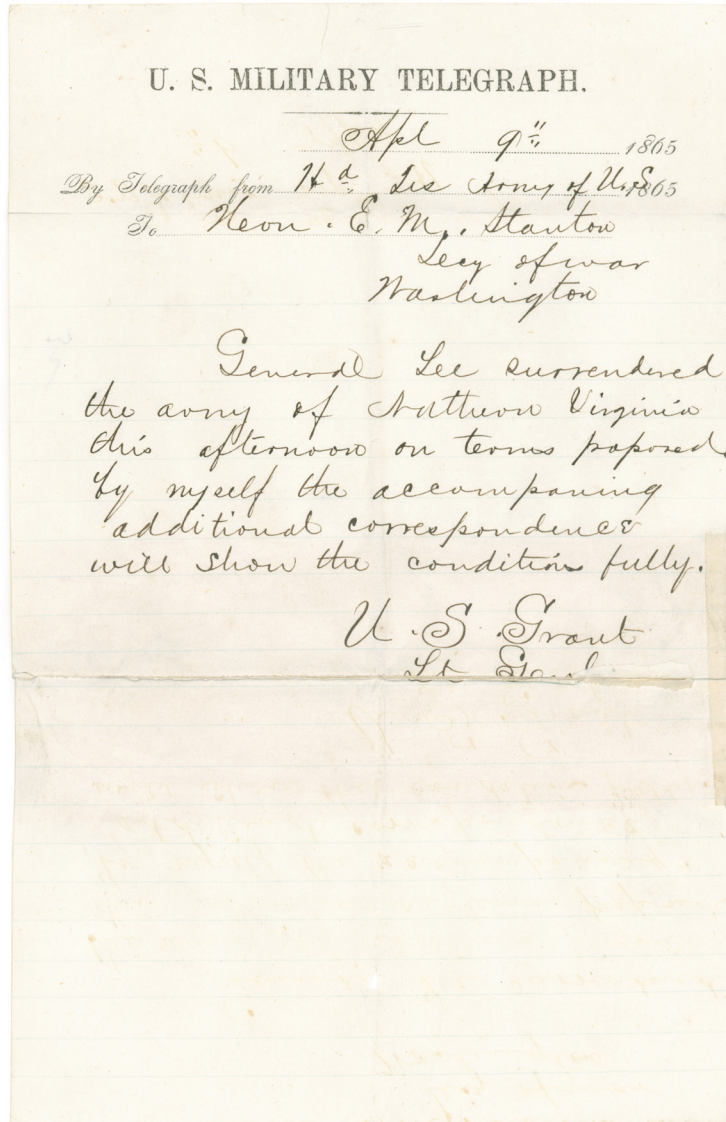 U. S. MILITARY TELEGRAPH.
Apl 9" 1865
By Telegraph from Hd Qrs Army of U.S 1865
To Hon. E. M. Stanton
Secy of war
Washington
General Lee surrendered
the army of Northern Virginia
this afternoon on terms proposed
by myself the accompaning
additional correspondence
will show the condition fully.
U. S. Grant
Lt Genl